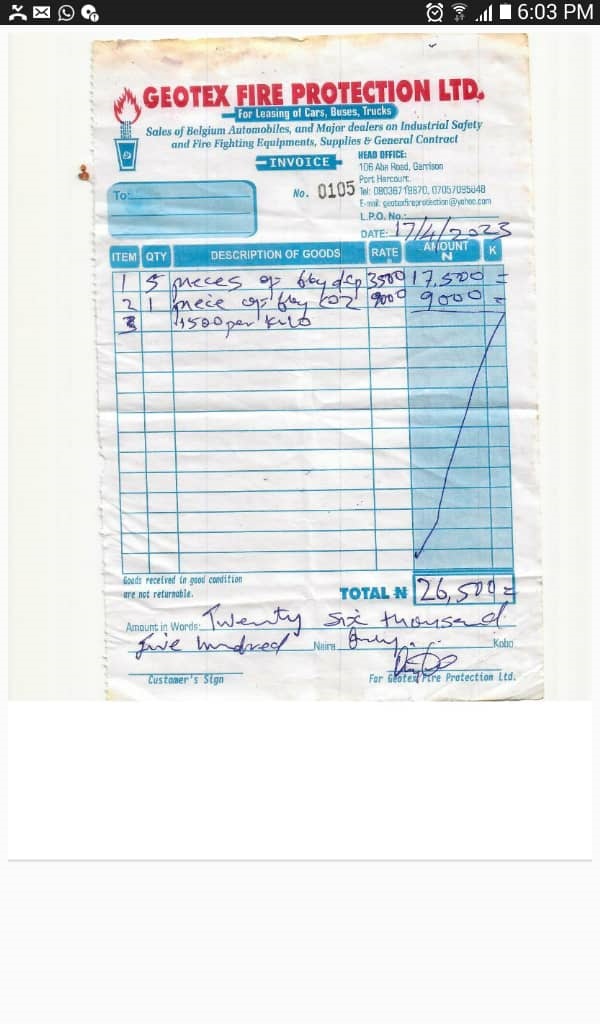 6:03 PM
GEOTEX FIRE PROTECTION LTD.
For Leasing of Cars, Buses, Trucks
Sales of Belgium Automobiles, and Major dealers on Industrial Safety
and Fire Fighting Equipments, Supplies & General Contract
INVOICE
HEAD OFFICE:
106 Aba Road, Garrison
Port Harcourt.
No. 0105
Tel: 08036719870, 07057095848
E-mail: geotexfireprotection@yahoo.com
To:
L.P.O. No:
DATE: 17/4/2023
ITEM QTY DESCRIPTION OF GOODS RATE AMOUNT N K
1 5 pieces of 6kg dcp 3500 17,500 =
2 1 piece of 6kg CO2 9000 9000 =
3 1500 per kilo
Goods received in good condition
are not returnable.
TOTAL N 26,500 =
Amount in Words: Twenty Six thousand
five hundred Naira Only. Kobo
Customer's Sign
For Geotex Fire Protection Ltd.